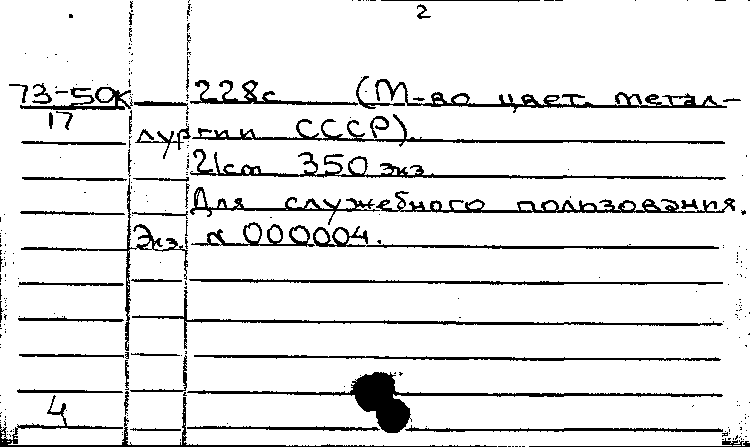 2
73-50к 228с (М-во цвет. метал-
17
лургии СССР).
21см 350 экз.
Для служебного пользования.
Экз. № 000004.
4